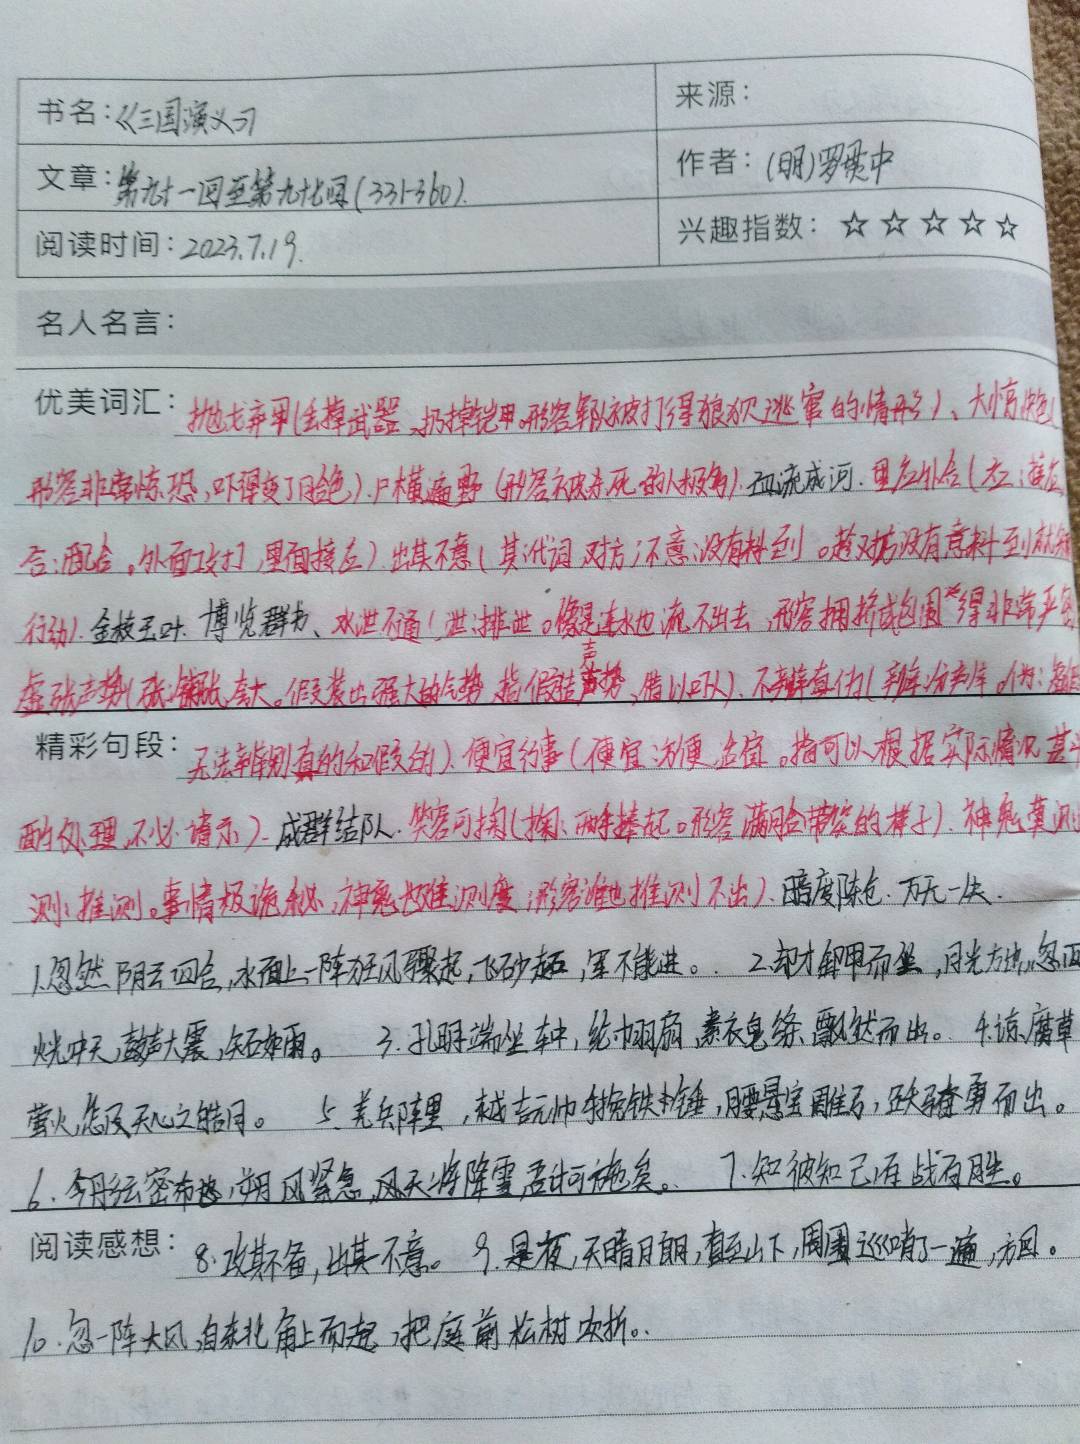 书名：《三国演义》
来源：
文章：第九十一回至第九十七回(331-360).
作者：(明)罗贯中
阅读时间：2023.7.19.
兴趣指数：☆☆☆☆☆
名人名言：
优美词汇：抛戈弃甲(丢掉武器、扔掉铠甲。形容军队被打得狼狈逃窜的情形)、大惊失色(
形容非常惊恐,吓得变了脸色).尸横遍野(形容被杀死的人极多).血流成河.里应外合(应:接应
合:配合。外面攻打,里面接应)出其不意(其:代词,对方;不意:没有料到。趁对方没有意料到就
行动).金枝玉叶.博览群书、水泄不通(泄:排泄。像是连水也流不出去,形容拥挤或包围得非常严
虚张声势(张:铺张,夸大。假装出强大的气势,指假造声势,借以吓人).不辨真伪(辨:分辨。伪:
精彩句段：无法辨别真的和假的).便宜行事(便宜:方便,合宜。指可以根据实际情况
酌处理,不必请示).成群结队.笑容可掬(掬:两手捧起。形容满脸带笑的样子).神鬼莫测
测:推测。事情极诡秘,神鬼也难测度,形容谁也推测不出).暗度陈仓.万无一失.
1.忽然阴云四合,水面上一阵狂风骤起,飞砂走石,军不能进。 2.却才卸甲而坐,月光方出,忽
火光冲天,鼓声大震,矢石如雨。 3.孔明端坐车中,纶巾羽扇,素衣皂绦,飘然而出。 4.谅腐草
萤火,怎及天心之皓月。 5.羌兵阵里,越吉元帅手挽铁锤,腰悬宝雕弓,跃马奋勇而出。
6.今彤云密布,朔风紧急,天将降雪,吾计可施矣。 7.知彼知己,百战百胜。
阅读感想：8.攻其不备,出其不意。 9.是夜,天晴月朗,直至山下,周围巡哨了一遍,方回。
10.忽一阵大风,自东北角上而起,把庭前松树吹折。